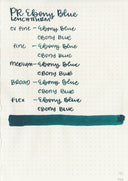 PR Ebony Blue
Leuchtturm
EX Fine - Ebony Blue
Ebony Blue
Fine - Ebony Blue
Ebony Blue
Medium - Ebony Blue
Ebony Blue
Broad - Ebony Blue
Ebony Blue
Flex - Ebony Blue
Ebony Blue